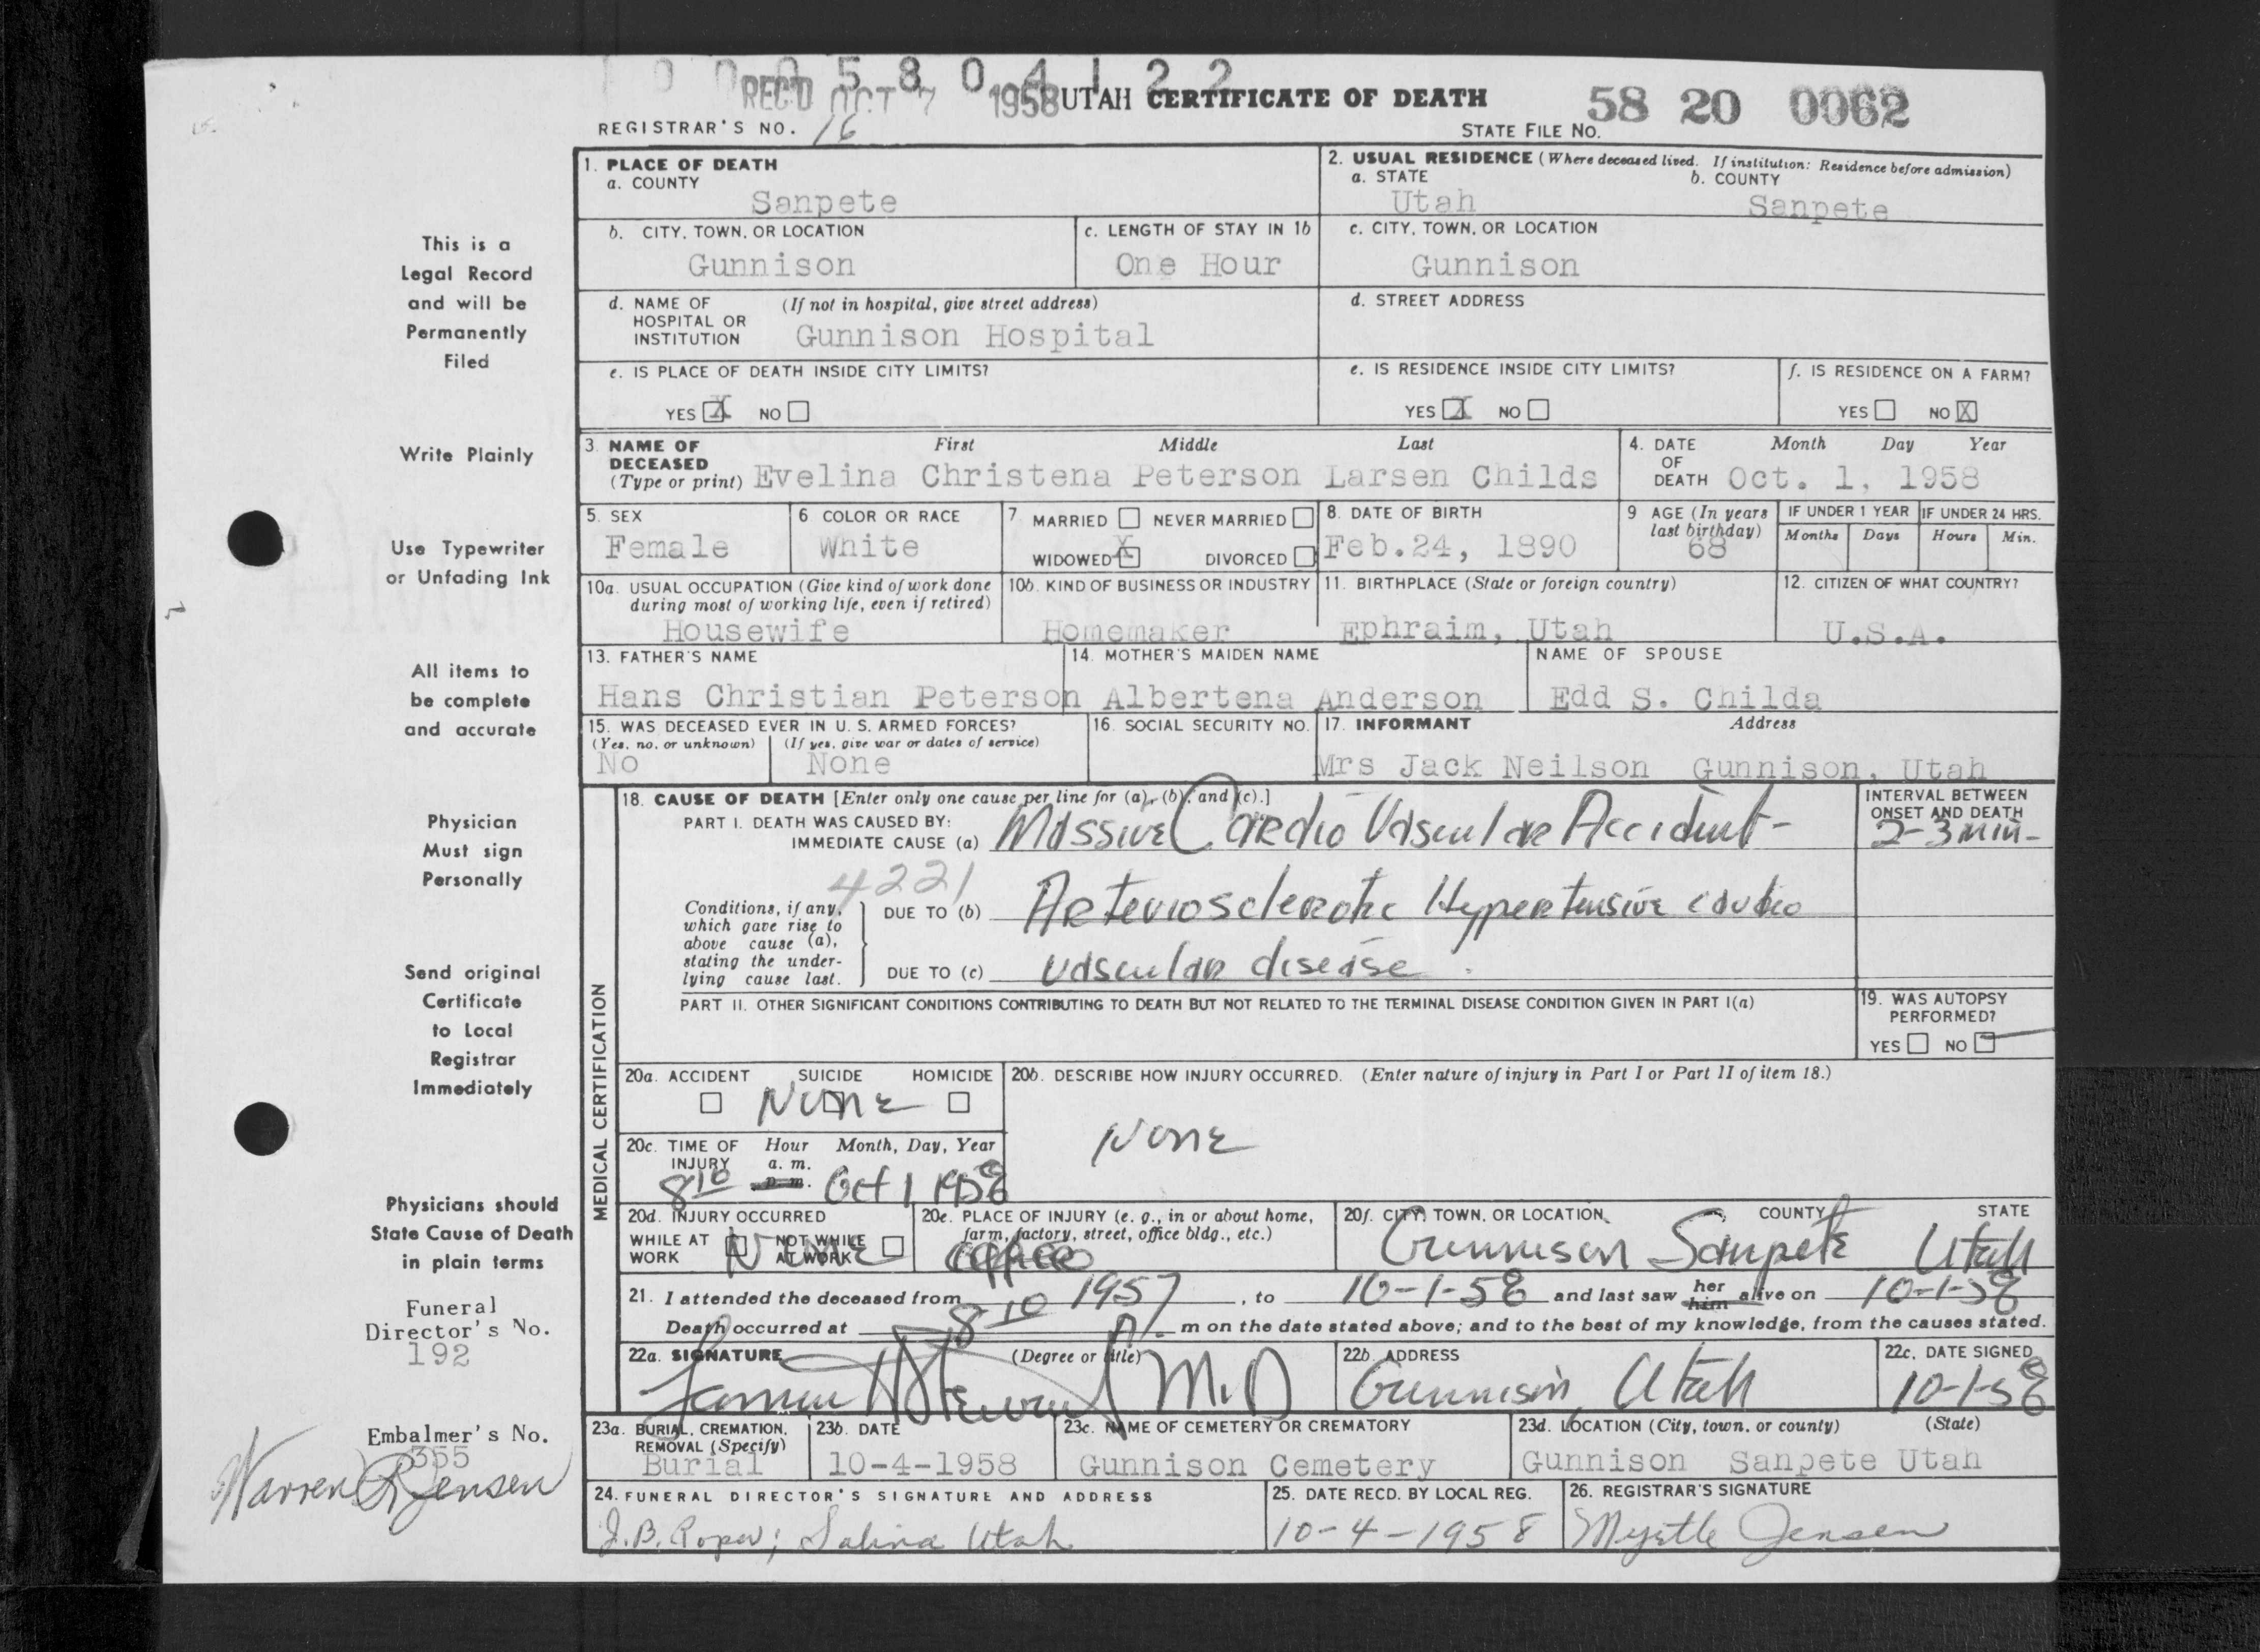 0 0 0 5 8 0 4 1 2 2
REC'D OCT 7 1958 UTAH CERTIFICATE OF DEATH 58 20 0062
REGISTRAR'S NO. 16 STATE FILE NO.
1. PLACE OF DEATH
a. COUNTY
Sanpete
2. USUAL RESIDENCE (Where deceased lived. If institution: Residence before admission)
a. STATE b. COUNTY
Utah Sanpete
b. CITY, TOWN, OR LOCATION
Gunnison
c. LENGTH OF STAY IN 1b
One Hour
c. CITY, TOWN, OR LOCATION
Gunnison
d. NAME OF (If not in hospital, give street address)
HOSPITAL OR
INSTITUTION Gunnison Hospital
d. STREET ADDRESS
e. IS PLACE OF DEATH INSIDE CITY LIMITS?
YES X NO
e. IS RESIDENCE INSIDE CITY LIMITS?
YES X NO
f. IS RESIDENCE ON A FARM?
YES NO X
3. NAME OF First Middle Last
DECEASED
(Type or print) Evelina Christena Peterson Larsen Childs
4. DATE Month Day Year
OF
DEATH Oct. 1, 1958
5. SEX
Female
6 COLOR OR RACE
White
7 MARRIED NEVER MARRIED
WIDOWED X DIVORCED
8. DATE OF BIRTH
Feb.24, 1890
9 AGE (In years
last birthday)
68
IF UNDER 1 YEAR IF UNDER 24 HRS.
Months Days Hours Min.
10a. USUAL OCCUPATION (Give kind of work done
during most of working life, even if retired)
Housewife
10b. KIND OF BUSINESS OR INDUSTRY
Homemaker
11. BIRTHPLACE (State or foreign country)
Ephraim, Utah
12. CITIZEN OF WHAT COUNTRY?
U.S.A.
13. FATHER'S NAME
Hans Christian Peterson
14. MOTHER'S MAIDEN NAME
Albertena Anderson
NAME OF SPOUSE
Edd S. Childa
15. WAS DECEASED EVER IN U. S. ARMED FORCES?
(Yes, no, or unknown) (If yes, give war or dates of service)
No None
16. SOCIAL SECURITY NO.
17. INFORMANT Address
Mrs Jack Neilson Gunnison, Utah
MEDICAL CERTIFICATION
18. CAUSE OF DEATH [Enter only one cause per line for (a), (b), and (c).]
PART I. DEATH WAS CAUSED BY:
IMMEDIATE CAUSE (a) Massive Cardio Vascular Accident-
INTERVAL BETWEEN
ONSET AND DEATH
2-3 min-
4221
Conditions, if any,
which gave rise to
above cause (a),
stating the under-
lying cause last.
DUE TO (b) Arteriosclerotic Hypertensive cardio
DUE TO (c) vascular disease.
PART II. OTHER SIGNIFICANT CONDITIONS CONTRIBUTING TO DEATH BUT NOT RELATED TO THE TERMINAL DISEASE CONDITION GIVEN IN PART I(a)
19. WAS AUTOPSY
PERFORMED?
YES NO
20a. ACCIDENT SUICIDE HOMICIDE
None
20b. DESCRIBE HOW INJURY OCCURRED. (Enter nature of injury in Part I or Part II of item 18.)
None
20c. TIME OF Hour Month, Day, Year
INJURY a. m.
8 10 p. m. Oct 1 1958
20d. INJURY OCCURRED
WHILE AT NOT WHILE
WORK AT WORK
None
20e. PLACE OF INJURY (e. g., in or about home,
farm, factory, street, office bldg., etc.)
office
20f. CITY, TOWN, OR LOCATION, COUNTY STATE
Gunnison Sanpete Utah
21. I attended the deceased from 1957, to 10-1-58 and last saw her him alive on 10-1-58
Death occurred at 8 10 A. m on the date stated above; and to the best of my knowledge, from the causes stated.
22a. SIGNATURE (Degree or title)
M.D
22b. ADDRESS
Gunnison, Utah
22c. DATE SIGNED
10-1-58
23a. BURIAL, CREMATION,
REMOVAL (Specify)
Burial
23b. DATE
10-4-1958
23c. NAME OF CEMETERY OR CREMATORY
Gunnison Cemetery
23d. LOCATION (City, town, or county) (State)
Gunnison Sanpete Utah
24. FUNERAL DIRECTOR'S SIGNATURE AND ADDRESS
J.B. Roper; Salina Utah
25. DATE RECD. BY LOCAL REG.
10-4-1958
26. REGISTRAR'S SIGNATURE
Myrtle Jensen
This is a
Legal Record
and will be
Permanently
Filed
Write Plainly
Use Typewriter
or Unfading Ink
All items to
be complete
and accurate
Physician
Must sign
Personally
Send original
Certificate
to Local
Registrar
Immediately
Physicians should
State Cause of Death
in plain terms
Funeral
Director's No.
192
Embalmer's No.
355
Warren R Jensen